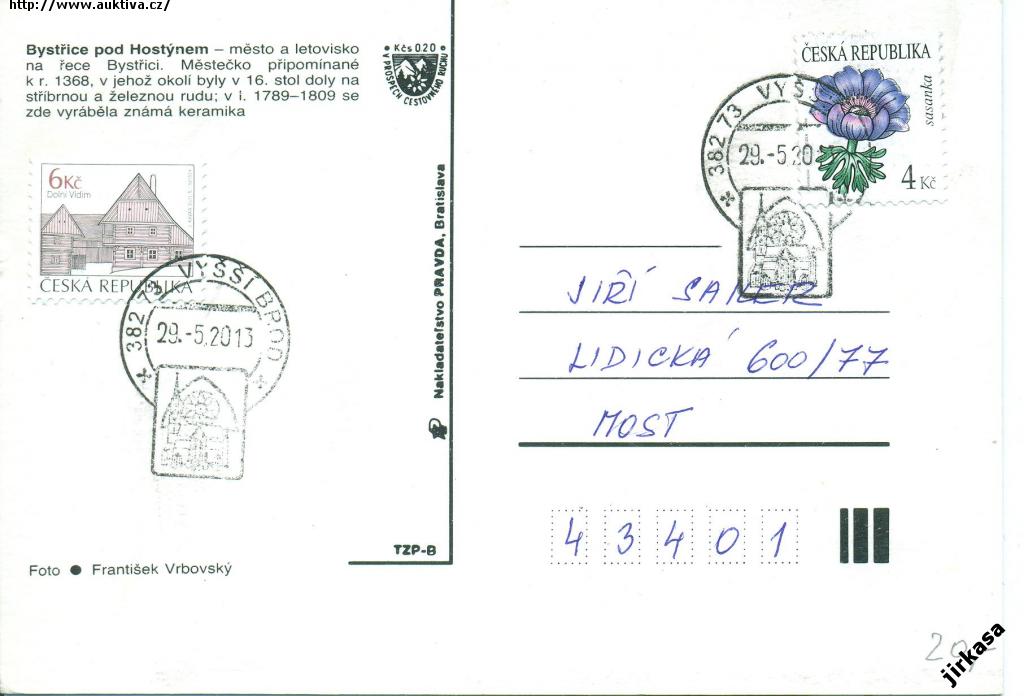 http://www.auktiva.cz/
Bystřice pod Hostýnem – město a letovisko
na řece Bystřici. Městečko připomínané
k r. 1368, v jehož okolí byly v 16. stol doly na
stříbrnou a železnou rudu; v l. 1789–1809 se
zde vyráběla známá keramika
Kčs 0.20
V PROSPĚCH CESTOVNÉHO RUCHU
6Kč
Dolní Vidim
ČESKÁ REPUBLIKA
382 73 VYŠŠÍ BROD
29.-5.2013
Nakladateľstvo PRAVDA, Bratislava
TZP-B
Foto ● František Vrbovský
ČESKÁ REPUBLIKA
sasanka
4 Kč
382 73 VYŠŠ
29.-5.201
JIŘÍ
LIDICKÁ 600/77
MOST
43401
20,-
jirkasa